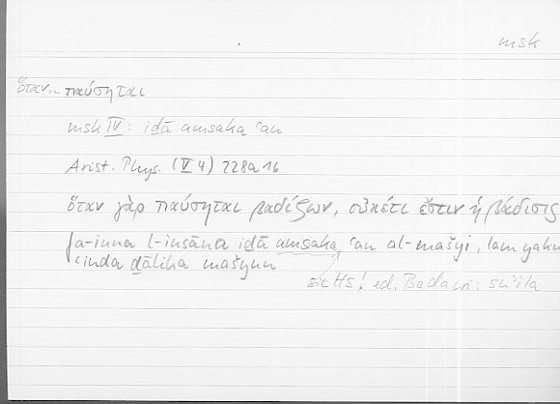 msk
ὅταν.. παύσηται
msk IV: iḏā amsaka ʿan
Arist. Phys. (V 4) 228a16
ὅταν γὰρ παύσηται βαδίζων, οὐκέτι ἔστιν ἡ βάδισις
fa-inna l-insāna iḏā amsaka ʿan al-mašyi, lam yaku
ʿinda ḏālika mašyun
sic Hs! ed. Badawi: suʾila